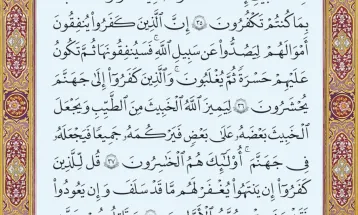 بِمَا كُنتُمْ تَكْفُرُونَ ۝٣٥ إِنَّ ٱلَّذِينَ كَفَرُوا۟ يُنفِقُونَ
أَمْوَٰلَهُمْ لِيَصُدُّوا۟ عَن سَبِيلِ ٱللَّهِ ۚ فَسَيُنفِقُونَهَا ثُمَّ تَكُونُ
عَلَيْهِمْ حَسْرَةً ثُمَّ يُغْلَبُونَ ۗ وَٱلَّذِينَ كَفَرُوٓا۟ إِلَىٰ جَهَنَّمَ
يُحْشَرُونَ ۝٣٦ لِيَمِيزَ ٱللَّهُ ٱلْخَبِيثَ مِنَ ٱلطَّيِّبِ وَيَجْعَلَ
ٱلْخَبِيثَ بَعْضَهُۥ عَلَىٰ بَعْضٍ فَيَرْكُمَهُۥ جَمِيعًا فَيَجْعَلَهُۥ
فِى جَهَنَّمَ ۚ أُو۟لَٰٓئِكَ هُمُ ٱلْخَٰسِرُونَ ۝٣٧ قُل لِّلَّذِينَ
كَفَرُوٓا۟ إِن يَنتَهُوا۟ يُغْفَرْ لَهُم مَّا قَدْ سَلَفَ وَإِن يَعُودُوا۟